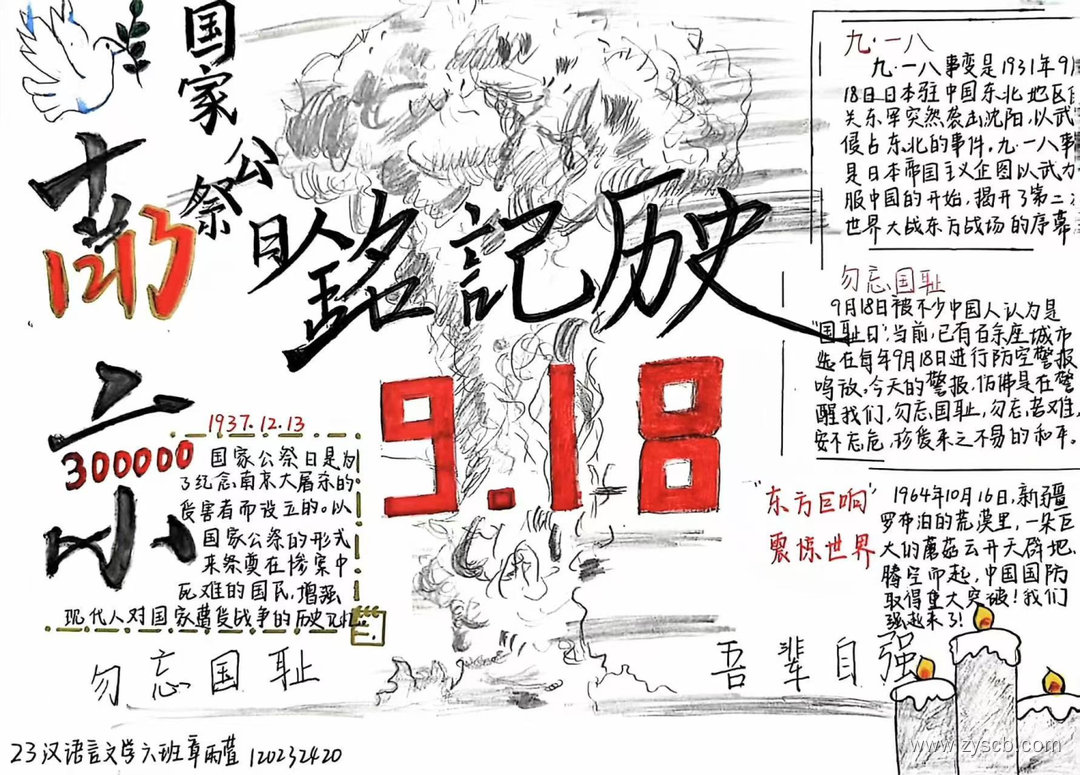 国家公祭日
南京
1213
300000
铭記历史
9.18
1937.12.13
国家公祭日是为
了纪念南京大屠杀的
受害者而设立的。以
国家公祭的形式
来祭奠在惨案中
死难的国民,增强
现代人对国家遭受战争的历史记忆
勿忘国耻
九·一八
九·一八事变是1931年9月
18日日本驻中国东北地区
关东军突然袭击沈阳,以武
侵占东北的事件。九·一八事
是日本帝国主义企图以武力
服中国的开始,揭开了第二
世界大战东方战场的序幕
勿忘国耻
9月18日被不少中国人认为是
"国耻日",当前,已有百余座城市
选在每年9月18日进行防空警报
鸣放。今天的警报,仿佛是在警
醒我们,勿忘国耻,勿忘苦难,
安不忘危,珍爱来之不易的和平。
"东方巨响"
震惊世界
1964年10月16日,新疆
罗布泊的荒漠里,一朵巨
大的蘑菇云开天辟地、
腾空而起,中国国防
取得重大突破!我们
强起来了!
吾辈自强
23汉语言文学六班章雨萱 120232420
www.zyscb.com